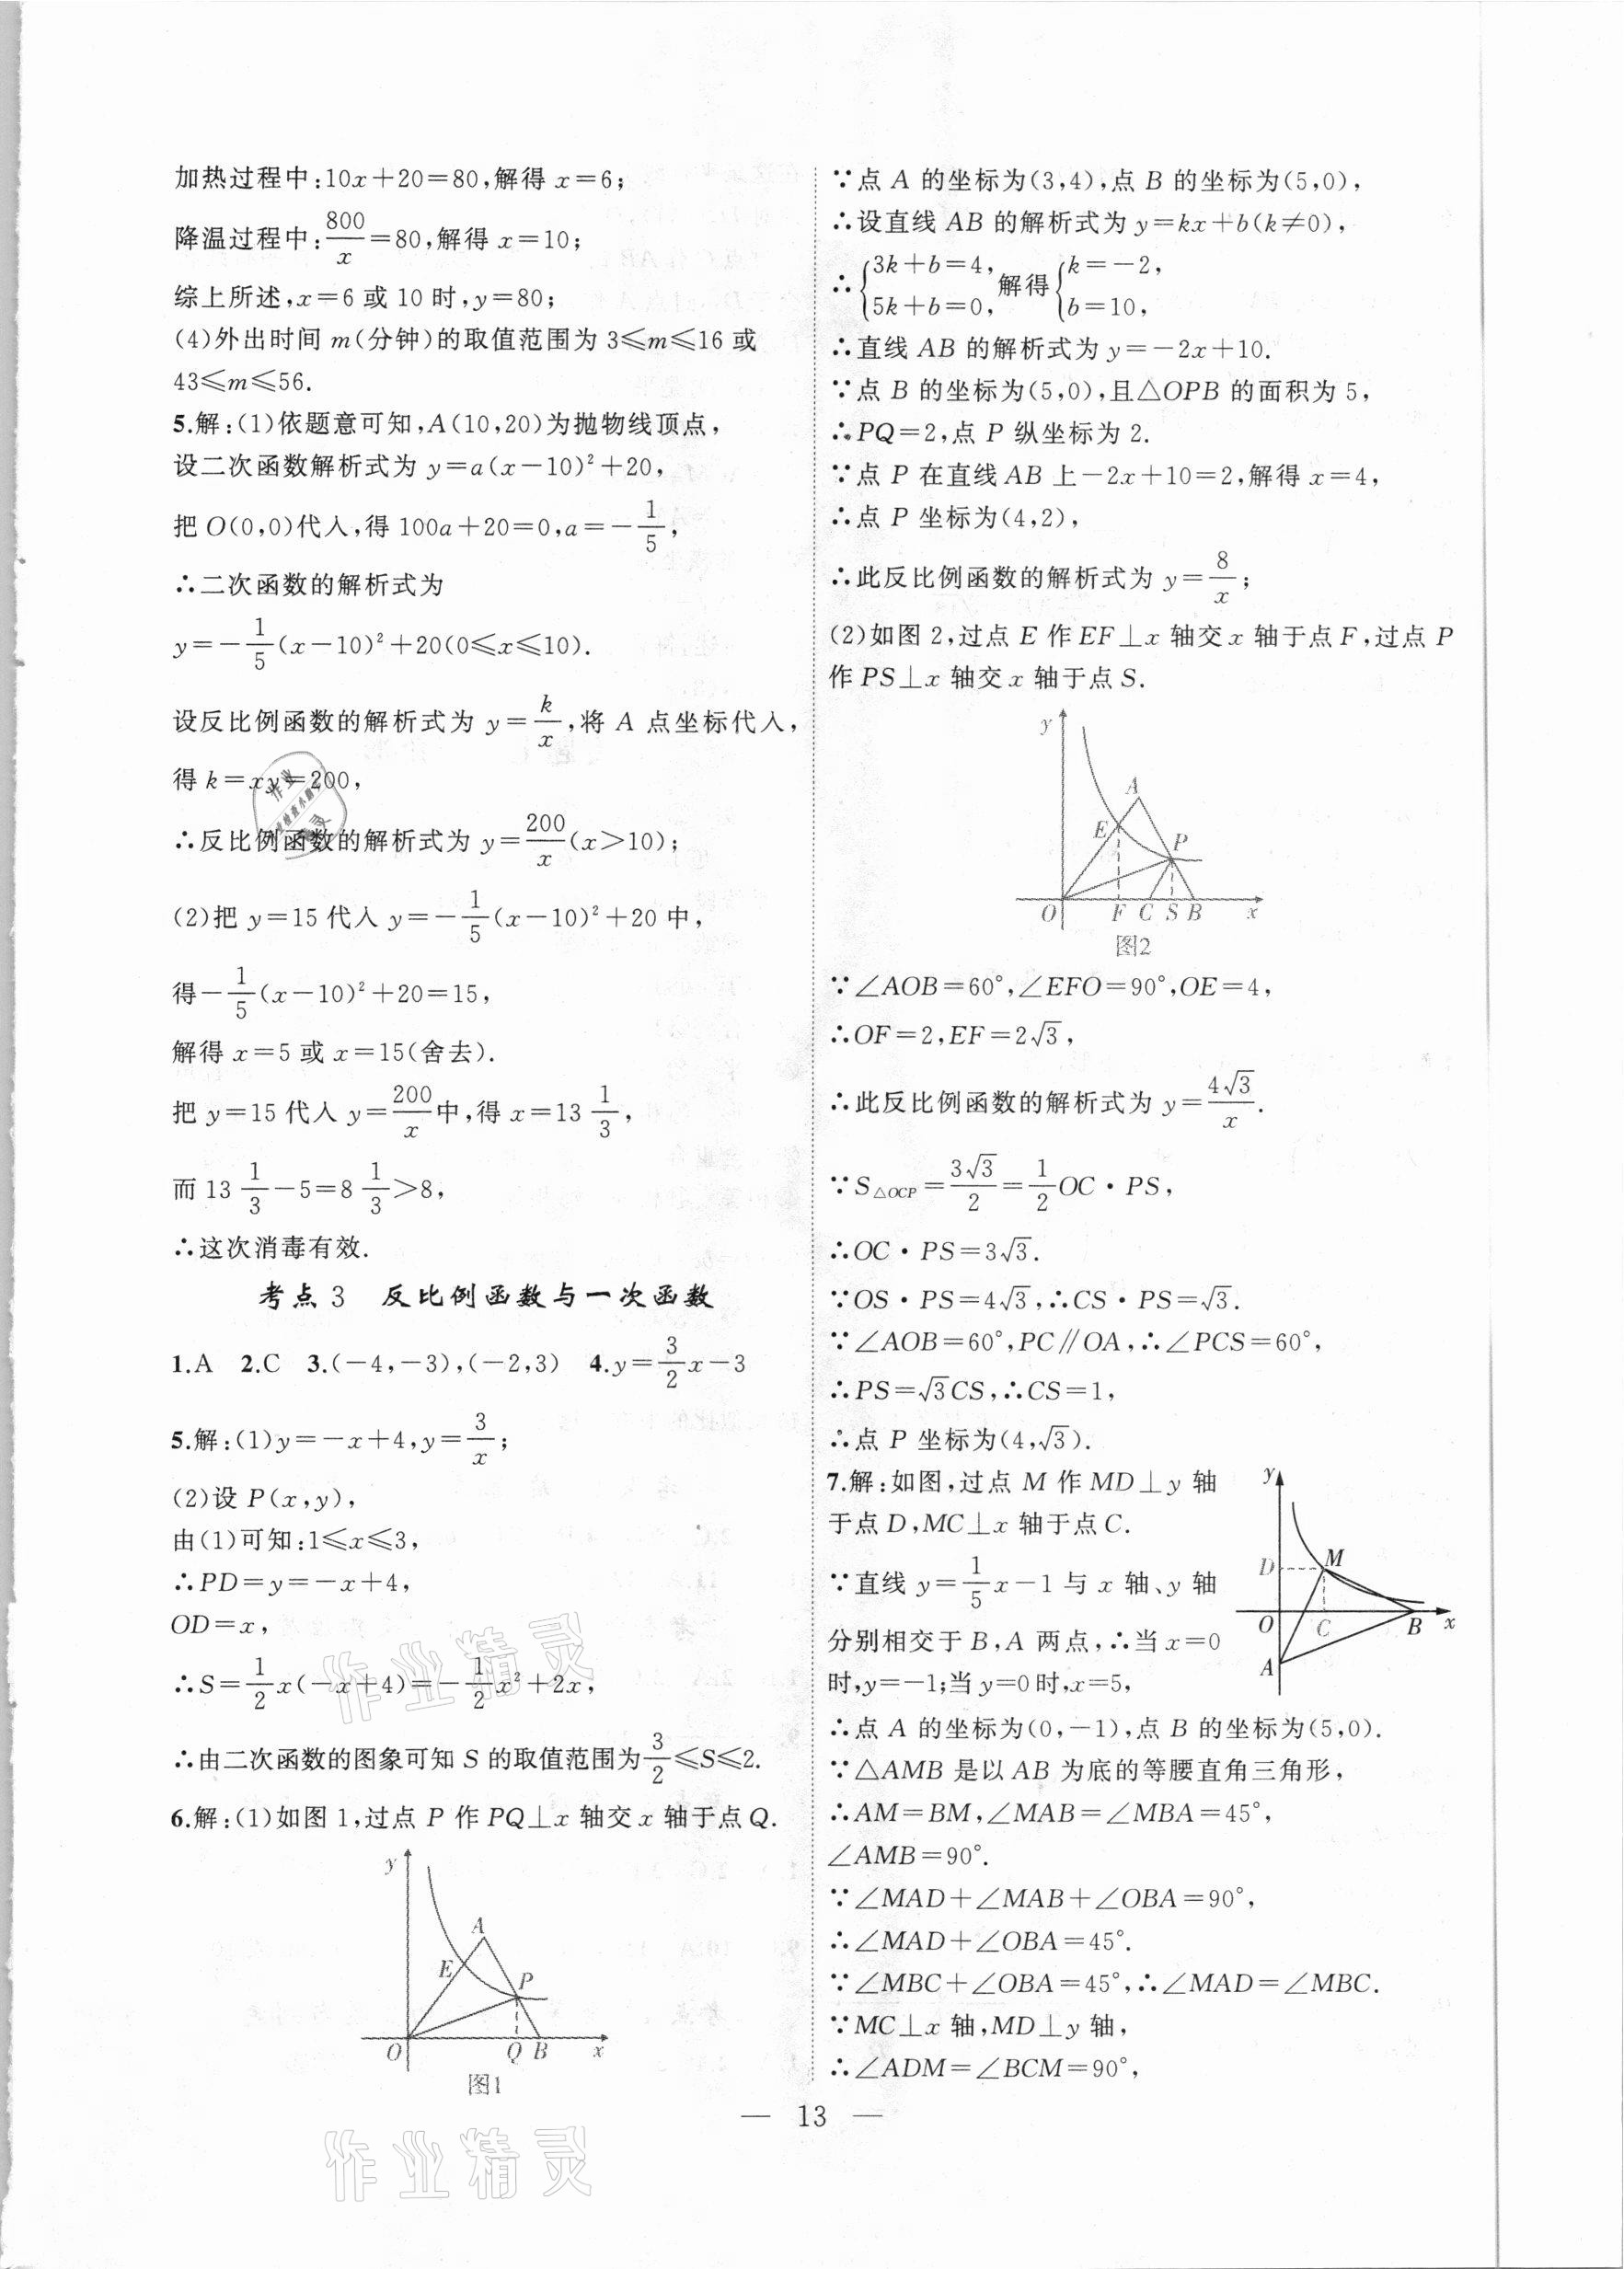 加热过程中:10x+20=80,解得 x=6;
降温过程中:800/x=80,解得 x=10;
综上所述,x=6 或 10 时,y=80;
(4)外出时间 m(分钟)的取值范围为 3≤m≤16 或
43≤m≤56.
5.解:(1)依题意可知,A(10,20)为抛物线顶点,
设二次函数解析式为 y=a(x-10)²+20,
把 O(0,0)代入,得 100a+20=0,a=-1/5,
∴二次函数的解析式为
y=-1/5(x-10)²+20(0≤x≤10).
设反比例函数的解析式为 y=k/x,将 A 点坐标代入,
得 k=xy=200,
∴反比例函数的解析式为 y=200/x(x>10);
(2)把 y=15 代入 y=-1/5(x-10)²+20 中,
得-1/5(x-10)²+20=15,
解得 x=5 或 x=15(舍去).
把 y=15 代入 y=200/x中,得 x=13 1/3,
而 13 1/3-5=8 1/3>8,
∴这次消毒有效.
考点 3 反比例函数与一次函数
1.A 2.C 3.(-4,-3),(-2,3) 4.y=3/2x-3
5.解:(1)y=-x+4,y=3/x;
(2)设 P(x,y),
由(1)可知:1≤x≤3,
∴PD=y=-x+4,
OD=x,
∴S=1/2x(-x+4)=-1/2x²+2x,
∴由二次函数的图象可知 S 的取值范围为3/2≤S≤2.
6.解:(1)如图 1,过点 P 作 PQ⊥x 轴交 x 轴于点 Q.
y
A
E
P
O
Q B x
图1
∵点 A 的坐标为(3,4),点 B 的坐标为(5,0),
∴设直线 AB 的解析式为 y=kx+b(k≠0),
∴{3k+b=4, 5k+b=0, 解得{k=-2, b=10,
∴直线 AB 的解析式为 y=-2x+10.
∵点 B 的坐标为(5,0),且△OPB 的面积为 5,
∴PQ=2,点 P 纵坐标为 2.
∵点 P 在直线 AB 上-2x+10=2,解得 x=4,
∴点 P 坐标为(4,2),
∴此反比例函数的解析式为 y=8/x;
(2)如图 2,过点 E 作 EF⊥x 轴交 x 轴于点 F,过点 P
作 PS⊥x 轴交 x 轴于点 S.
y
A
E
P
O F C S B x
图2
∵∠AOB=60°,∠EFO=90°,OE=4,
∴OF=2,EF=2√3,
∴此反比例函数的解析式为 y=4√3/x.
∵S△OCP=3√3/2=1/2OC·PS,
∴OC·PS=3√3.
∵OS·PS=4√3,∴CS·PS=√3.
∵∠AOB=60°,PC∥OA,∴∠PCS=60°,
∴PS=√3CS,∴CS=1,
∴点 P 坐标为(4,√3).
7.解:如图,过点 M 作 MD⊥y 轴
于点 D,MC⊥x 轴于点 C.
∵直线 y=1/5x-1 与 x 轴、y 轴
分别相交于 B,A 两点,∴当 x=0
时,y=-1;当 y=0 时,x=5,
y
D
M
O C B x
A
∴点 A 的坐标为(0,-1),点 B 的坐标为(5,0).
∵△AMB 是以 AB 为底的等腰直角三角形,
∴AM=BM,∠MAB=∠MBA=45°,
∠AMB=90°.
∵∠MAD+∠MAB+∠OBA=90°,
∴∠MAD+∠OBA=45°.
∵∠MBC+∠OBA=45°,∴∠MAD=∠MBC.
∵MC⊥x 轴,MD⊥y 轴,
∴∠ADM=∠BCM=90°,
— 13 —
作业精灵
作业精灵